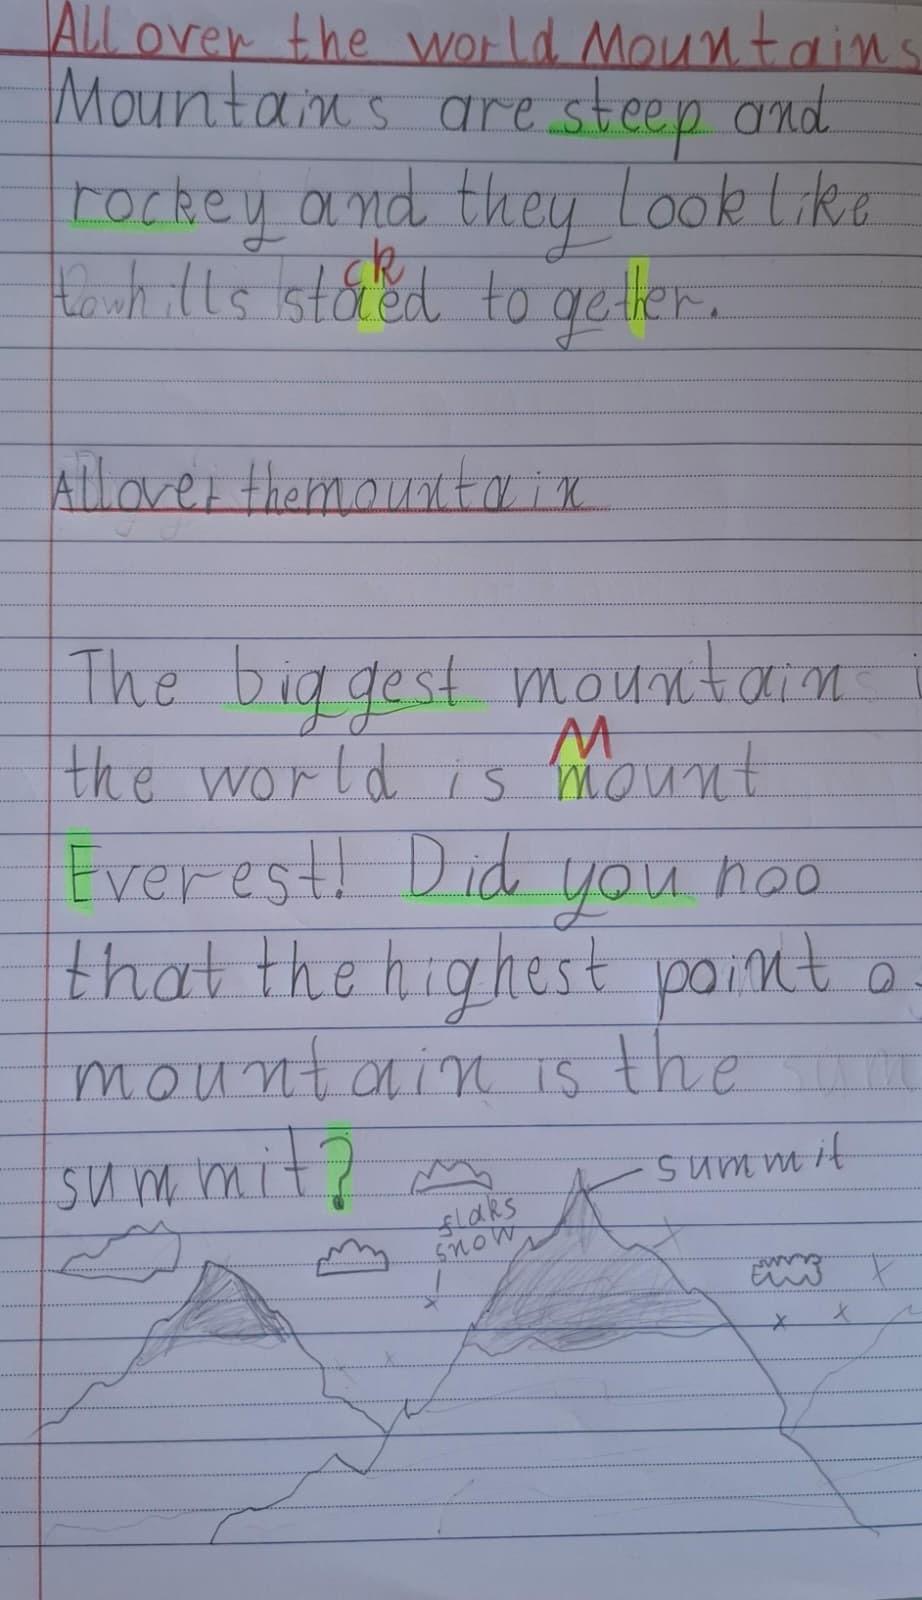 All over the world Mountains
Mountains are steep and
rockey and they look like
hills staced to geter.
ck
All over the mountain
The biggest mountain i
the world is mount
M
Everest! Did you noo
that the highest point o
mountain is the sum
summit?
summit
flaks
snow